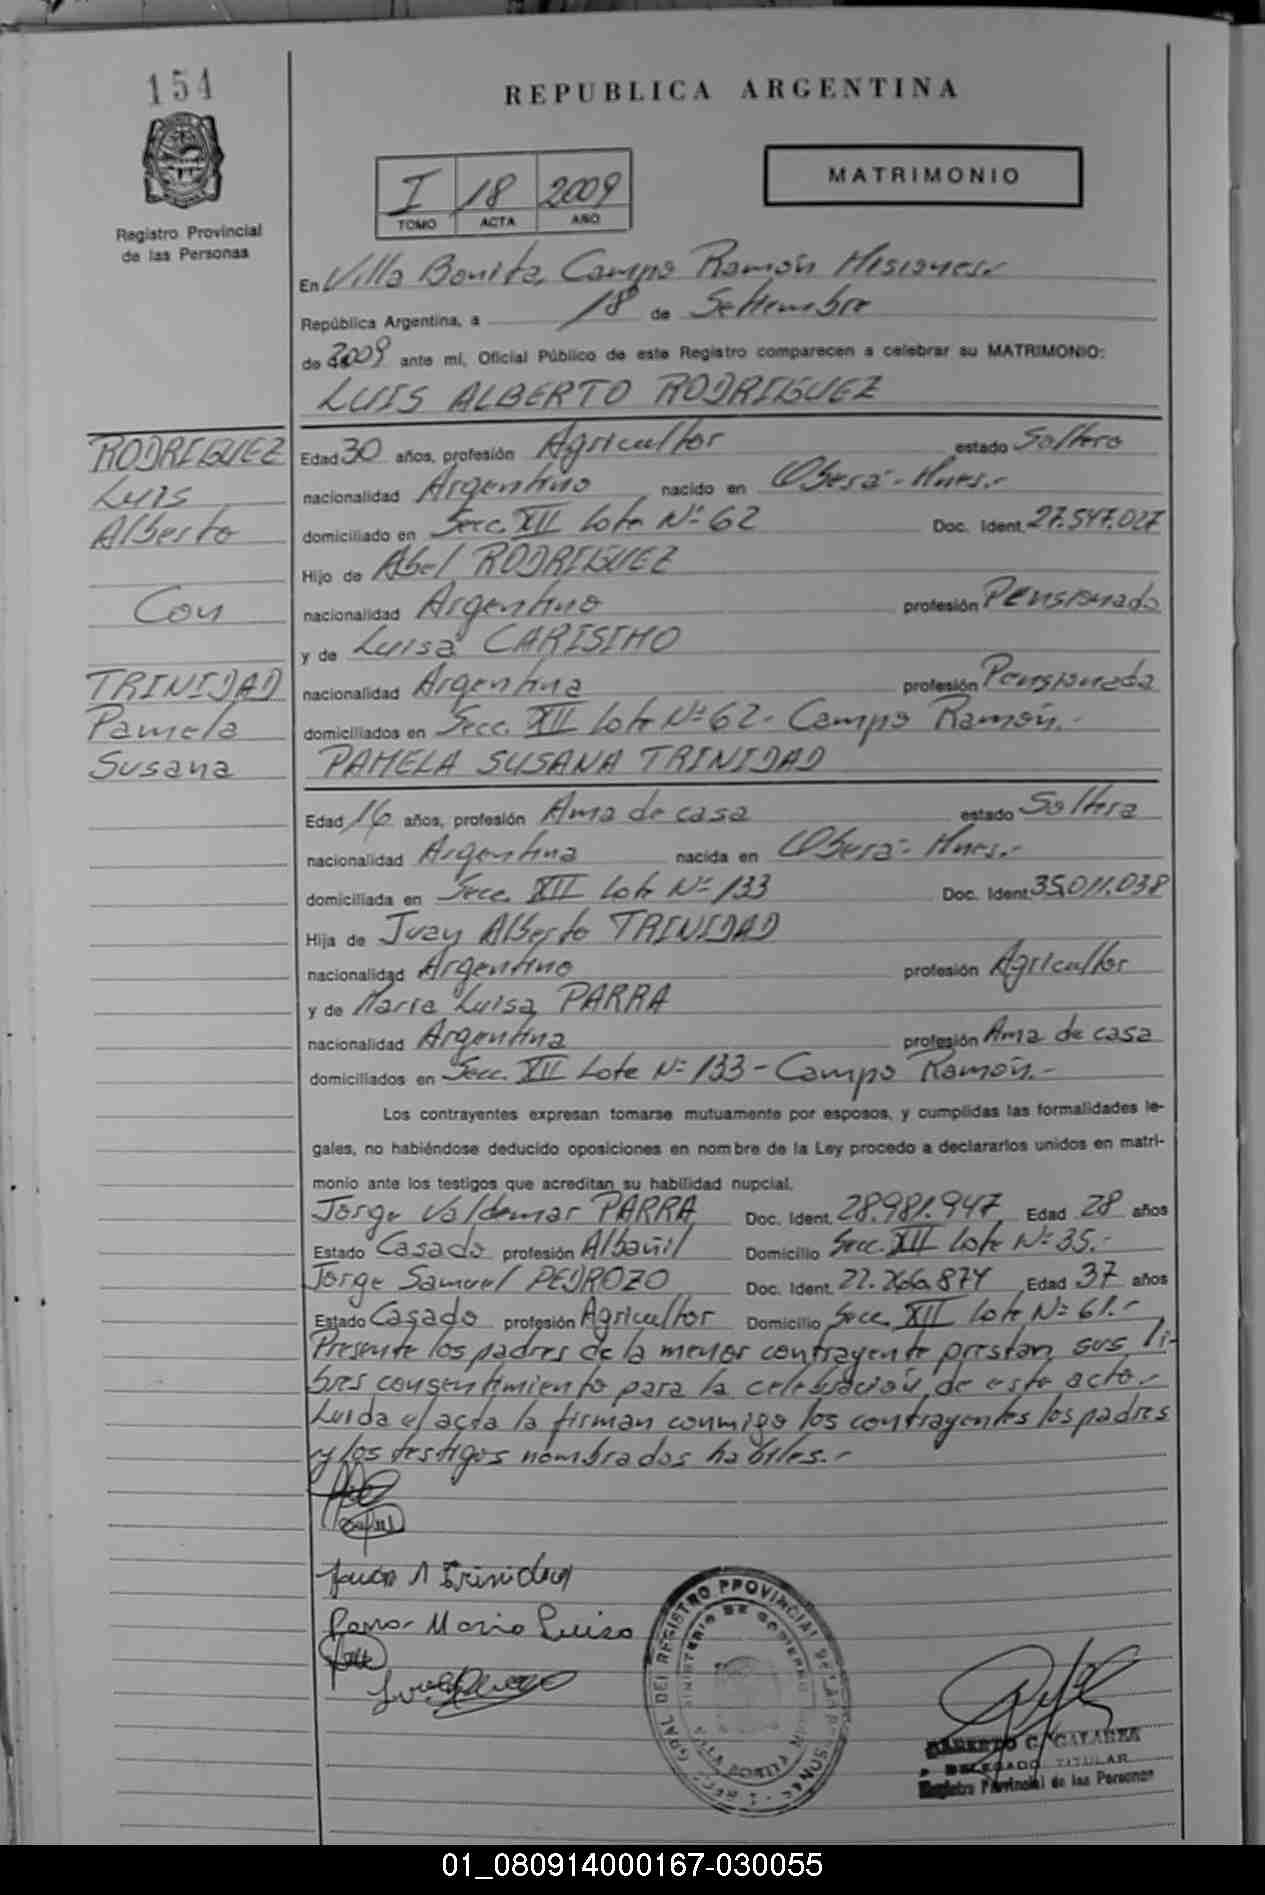 154
REPUBLICA ARGENTINA
I 18 2009
TOMO ACTA AÑO
MATRIMONIO
Registro Provincial
de las Personas
En Villa Bonita, Campo Ramón Misiones.-
República Argentina, a 18 de Setiembre
de 2009 ante mí, Oficial Público de este Registro comparecen a celebrar su MATRIMONIO:
LUIS ALBERTO RODRIGUEZ
RODRIGUEZ
Luis
Alberto
Con
TRINIDAD
Pamela
Susana
Edad 30 años, profesión Agricultor estado Soltero
nacionalidad Argentino nacido en Oberá - Mnes.-
domiciliado en Secc. XII Lote Nº 62 Doc. Ident. 27.547.027
Hijo de Abel RODRIGUEZ
nacionalidad Argentino profesión Pensionado
y de Luisa CARISIMO
nacionalidad Argentina profesión Pensionada
domiciliados en Secc. XII Lote Nº 62 - Campo Ramón.-
PAMELA SUSANA TRINIDAD
Edad 16 años, profesión Ama de casa estado Soltera
nacionalidad Argentina nacida en Oberá - Mnes.-
domiciliada en Secc. XII Lote Nº 133 Doc. Ident. 35.011.038
Hija de Juan Alberto TRINIDAD
nacionalidad Argentino profesión Agricultor
y de Maria Luisa PARRA
nacionalidad Argentina profesión Ama de casa
domiciliados en Secc. XII Lote Nº 133 - Campo Ramón.-
Los contrayentes expresan tomarse mutuamente por esposos, y cumplidas las formalidades le-
gales, no habiéndose deducido oposiciones en nombre de la Ley procedo a declararlos unidos en matri-
monio ante los testigos que acreditan su habilidad nupcial.
Jorge Valdemar PARRA Doc. Ident. 28.981.947 Edad 28 años
Estado Casado profesión Albañil Domicilio Secc. XII Lote Nº 35.-
Jorge Samuel PEDROZO Doc. Ident. 22.266.874 Edad 37 años
Estado Casado profesión Agricultor Domicilio Secc. XII Lote Nº 61.-
Presente los padres de la menor contrayente prestan sus li-
bres consentimiento para la celebración de este acto.-
Leida el acta la firman conmigo los contrayentes los padres
y los testigos nombrados habiles.-
Juan A Trinidad
Parra Maria Luisa
GRAL DEL REGISTRO PROVINCIAL DE LAS PERSONAS
MINISTERIO DE GOBIERNO
VILLA BONITA
DELEGADO TITULAR
Registro Provincial de las Personas
01_080914000167-030055